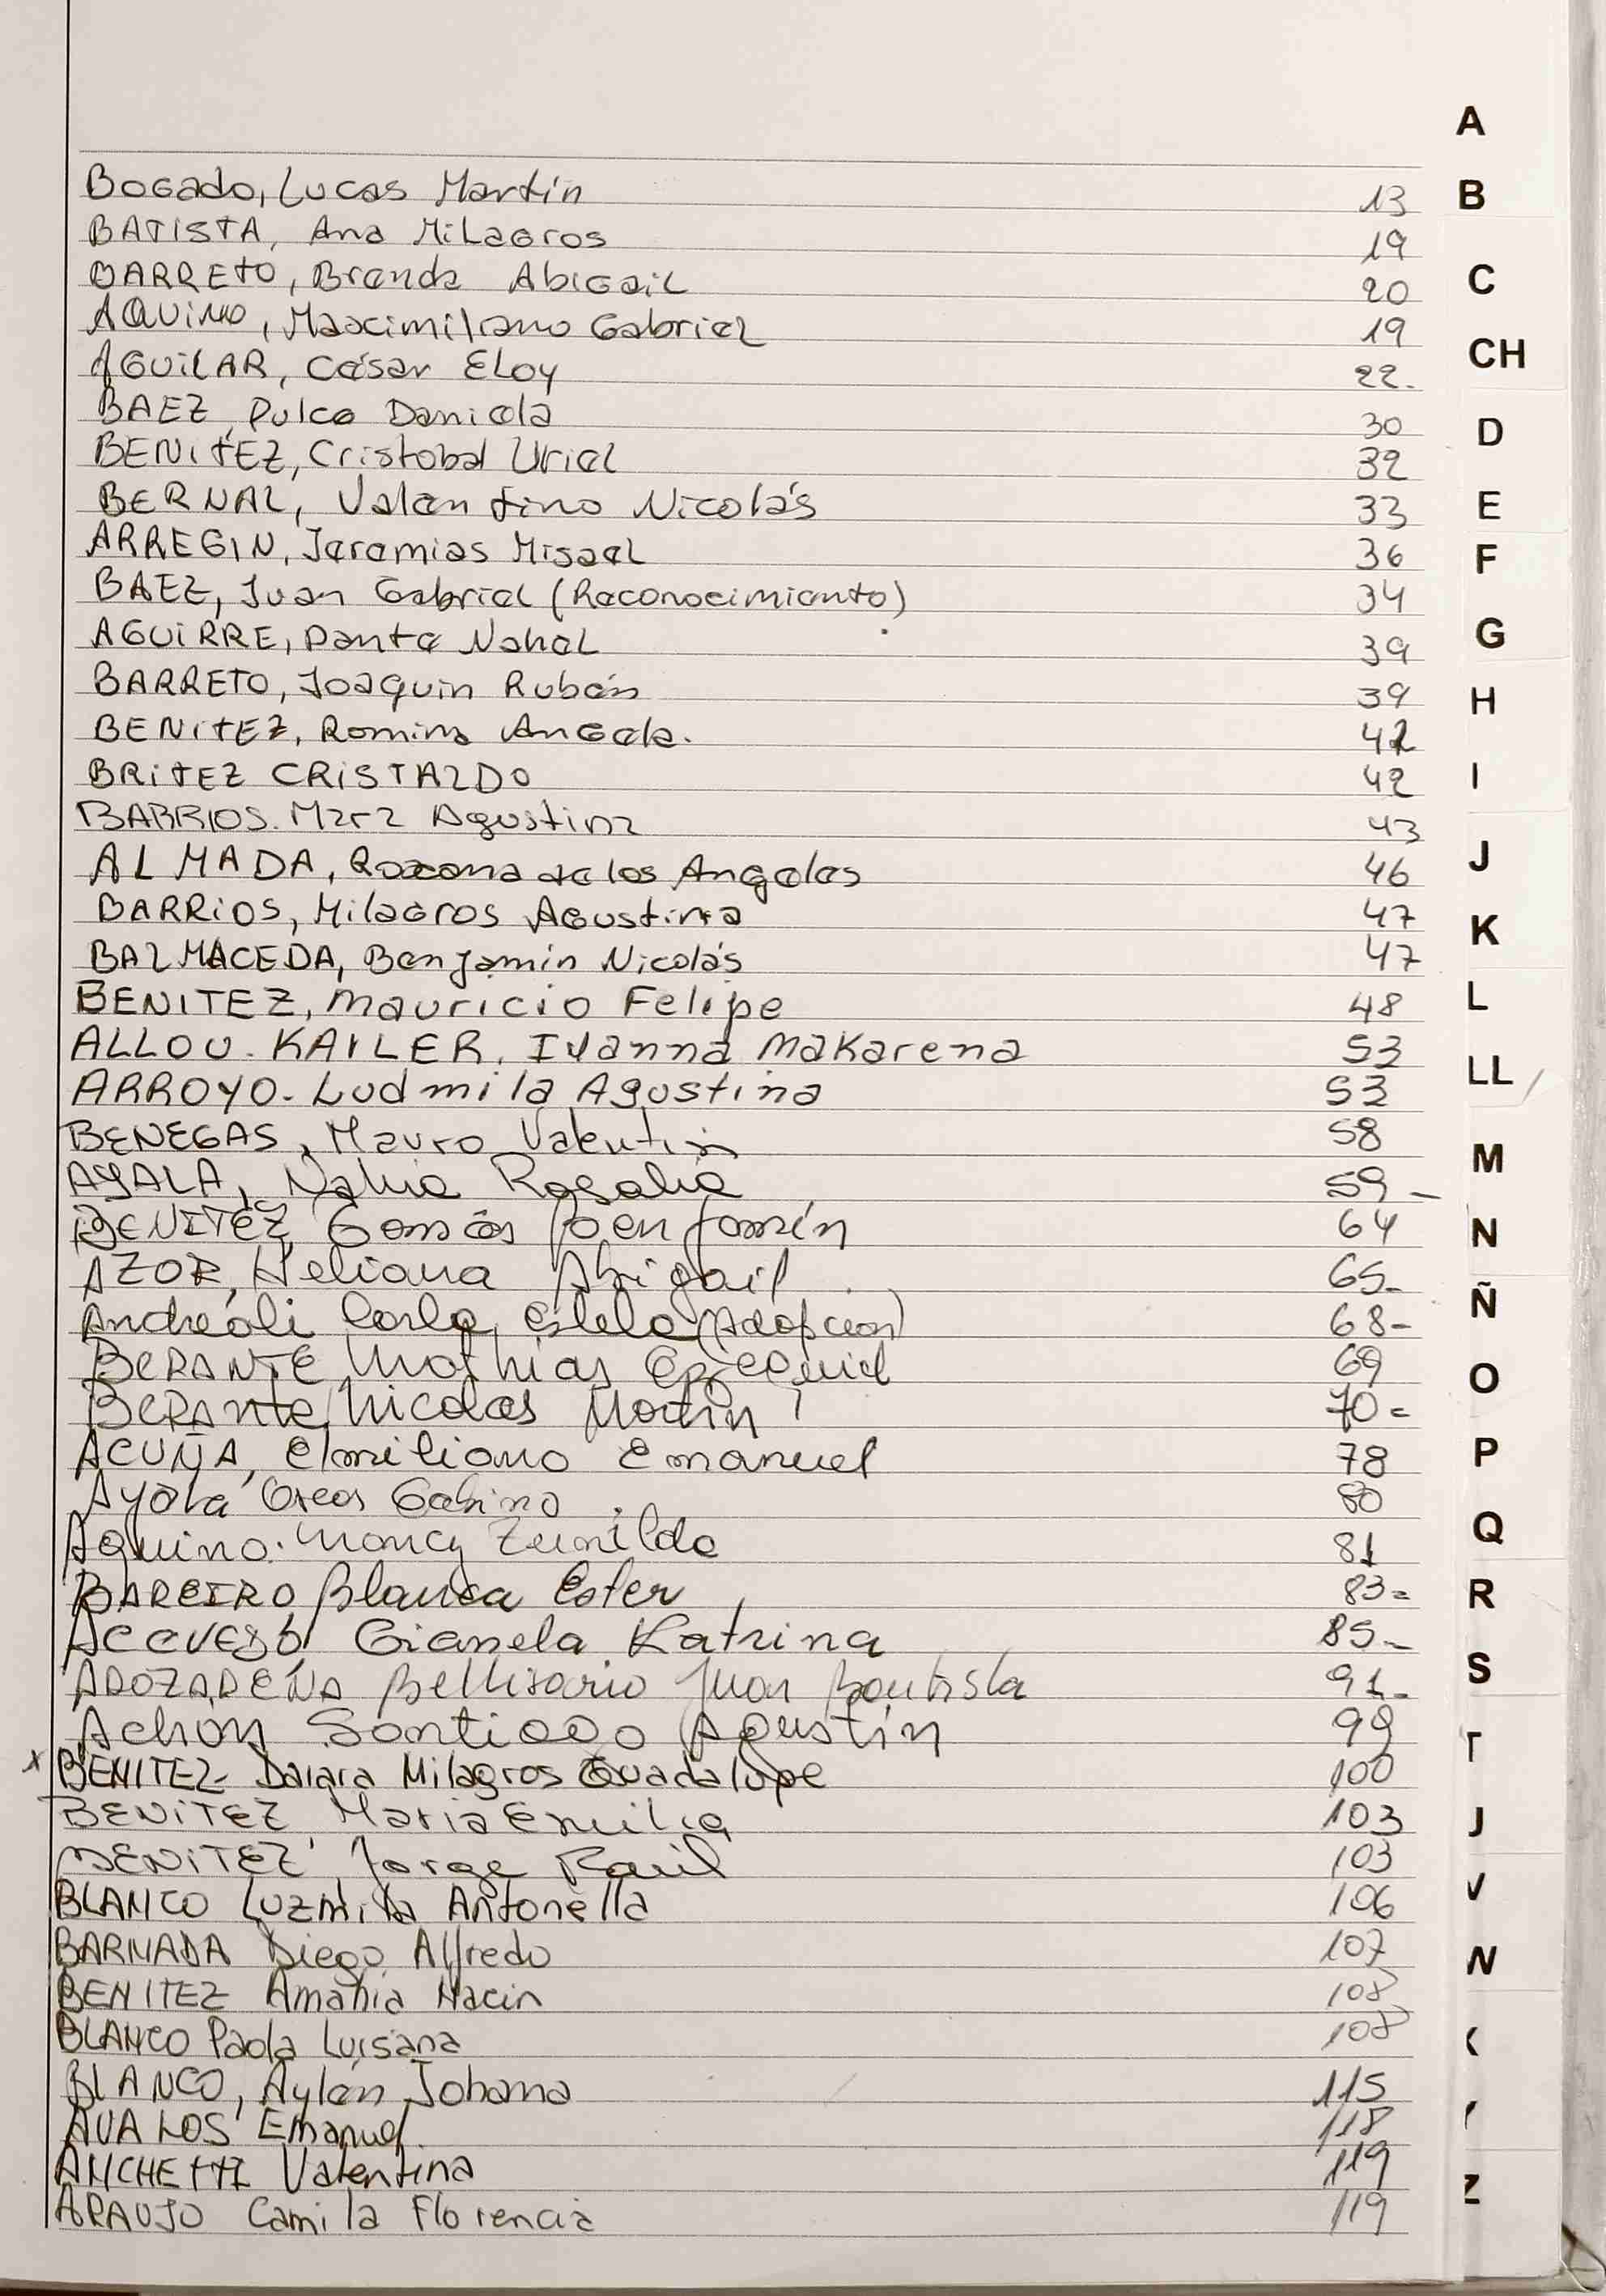 A
BOGADO, Lucas Martín 13
B
BATISTA, Ana Milagros 19
BARRETO, Brenda Abigail 20
C
AQUINO, Maximiliano Gabriel 19
CH
AGUILAR, César Eloy 22.
BAEZ, Dulce Daniela 30
D
BENITEZ, Cristobal Uriel 32
BERNAL, Valentino Nicolás 33
E
ARREGIN, Jeremias Misael 36
F
BAEZ, Juan Gabriel (Reconocimiento) 34
AGUIRRE, Dante Nahel 39
G
BARRETO, Joaquin Rubén 39
H
BENITEZ, Romina Angela. 42
BRITEZ CRISTALDO 42
I
BARRIOS. Mara Agustina 43
ALMADA, Roxana de los Angeles 46
J
BARRIOS, Milagros Agustina 47
K
BALMACEDA, Benjamín Nicolás 47
BENITEZ, Mauricio Felipe 48
L
ALLOU-KAILER, Ivanna Makarena 53
LL
ARROYO-Ludmila Agustina 53
BENEGAS, Mauro Valentin 58
M
AYALA, Nahia Rosalia 59-
BENITEZ, Tomás Benjamín 64
N
AZOR, Heliana Abigail 65-
Ñ
Andreoli Carla Estela (Adopcion) 68-
BERANTE Mathias Ezequiel 69
O
BERAnte, Nicolas Martin 70=
ACUÑA, Emiliano Emanuel 78
P
Ayala Gabino 80
Q
Aquino. Nancy Zunilda 81
BAREIRO, Blanca Ester 83=
R
ACEVEDO, Gianela Katrina 85-
S
Bellisario Juan Bautista 91-
Achon Santiago Agustín 99
T
x BENITEZ- Daiara Milagros Guadalupe 100
BENITEZ Maria Emilia 103
U
BENITEZ, Jorge Raúl 103
V
BLANCO Luzmila Antonella 106
BARNADA Diego Alfredo 107
W
BENITEZ Amahia Nacin 108
BLANCO Paola Luisana 108
X
BLANCO, Aylén Johana 115
Y
AVALOS Emanuel. 118
ANCHETTI Valentina 119
Z
ARAUJO Camila Florencia 119